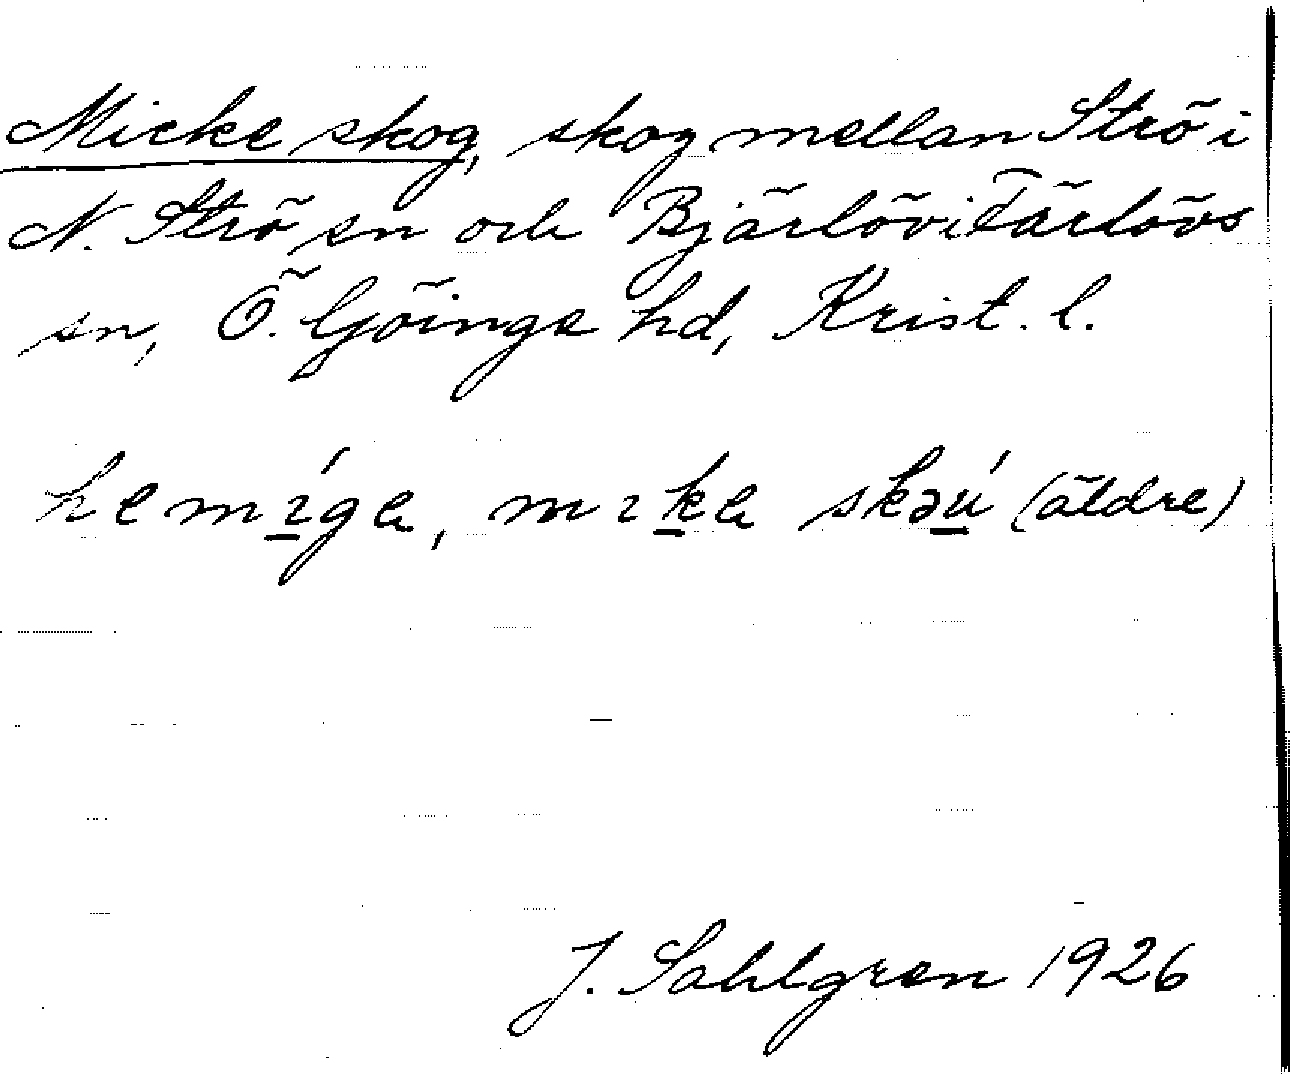 Micke skog, skog mellan Strö i
N. Strö sn och Bjärlöv i Färlövs
sn, Ö. Göinge hd, Krist. l.
hemíga, mıka skəú (äldre)
J. Sahlgren 1926